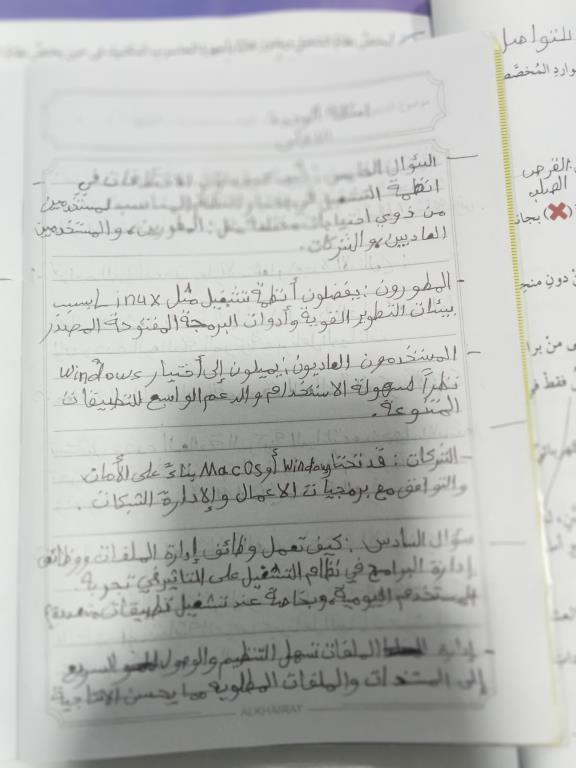 أسئلة الوحدة
الأولى
السؤال الخامس: الاختلافات في
انظمة التشغيل في اختيار المناسب لمستخدمين
من ذوي احتياجات مختلفة مثل: المطورين، والمستخدمين
العاديين، والشركات.
- المطورون: يفضلون أنظمة تشغيل مثل Linux بسبب
بيئات التطوير القوية وأدوات البرمجة المفتوحة المصدر
- المستخدمون العاديون: يميلون إلى أختيار Windows
نظراً لسهولة الاستخدام والدعم الواسع للتطبيقات
المتنوعة.
- الشركات: قد تختار Windows أو MacOS بناءً على الأمان
والتوافق مع برمجيات الاعمال ولإدارة الشبكات.
سؤال السادس: كيف تعمل وظائف إدارة الملفات ووظائف
إدارة البرامج في نظام التشغيل على التاثير في تجربة
المستخدم اليومية، وبخاصة عند تشغيل تطبيقات متعددة؟
- إدارة الملفات تسهل التنظيم والوصول السريع
إلى المستندات والملفات المطلوبة مما يحسن الانتاجية
ALKHAIRAT
للتواصل
القرص
الصلب